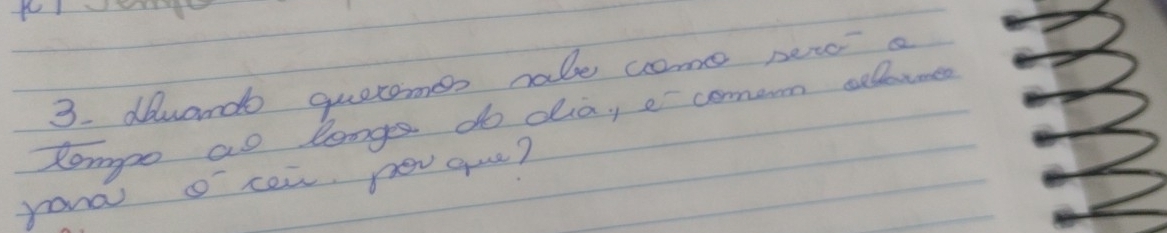 3. Quando queremos sabe como será o
tempo ao longo do dia, é comem olharmos
para o céu. por que?